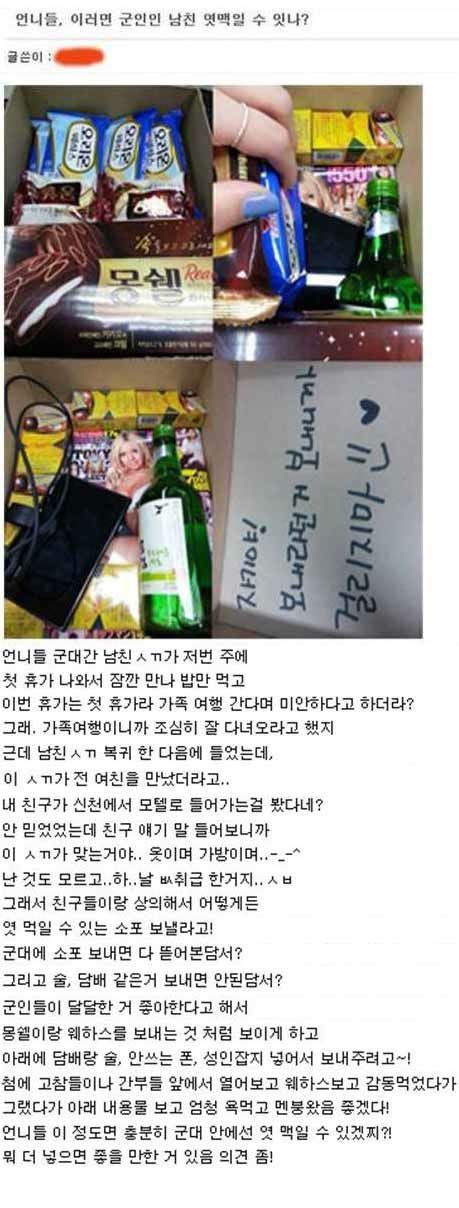 언니들, 이러면 군인인 남친 엿맥일 수 잇나?
글쓴이 :
오리온
웨하스
몽쉘
Real
1550
언니들 군대간 남친ㅅㄲ가 저번 주에
첫 휴가 나와서 잠깐 만나 밥만 먹고
이번 휴가는 첫 휴가라 가족 여행 간다며 미안하다고 하더라?
그래. 가족여행이니까 조심히 잘 다녀오라고 했지
근데 남친ㅅㄲ 복귀 한 다음에 들었는데,
이 ㅅㄲ가 전 여친을 만났더라고..
내 친구가 신천에서 모텔로 들어가는걸 봤다네?
안 믿었었는데 친구 얘기 말 들어보니까
이 ㅅㄲ가 맞는거야.. 옷이며 가방이며..-_-^
난 것도 모르고..하..날 ㅄ취급 한거지..ㅅㅂ
그래서 친구들이랑 상의해서 어떻게든
엿 먹일 수 있는 소포 보낼라고!
군대에 소포 보내면 다 뜯어본담서?
그리고 술, 담배 같은거 보내면 안된담서?
군인들이 달달한 거 좋아한다고 해서
몽쉘이랑 웨하스를 보내는 것 처럼 보이게 하고
아래에 담배랑 술, 안쓰는 폰, 성인잡지 넣어서 보내주려고~!
첨에 고참들이나 간부들 앞에서 열어보고 웨하스보고 감동먹었다가
그랬다가 아래 내용물 보고 엄청 욕먹고 멘붕왔음 좋겠다!
언니들 이 정도면 충분히 군대 안에선 엿 맥일 수 있겠찌?!
뭐 더 넣으면 좋을 만한 거 있음 의견 좀!